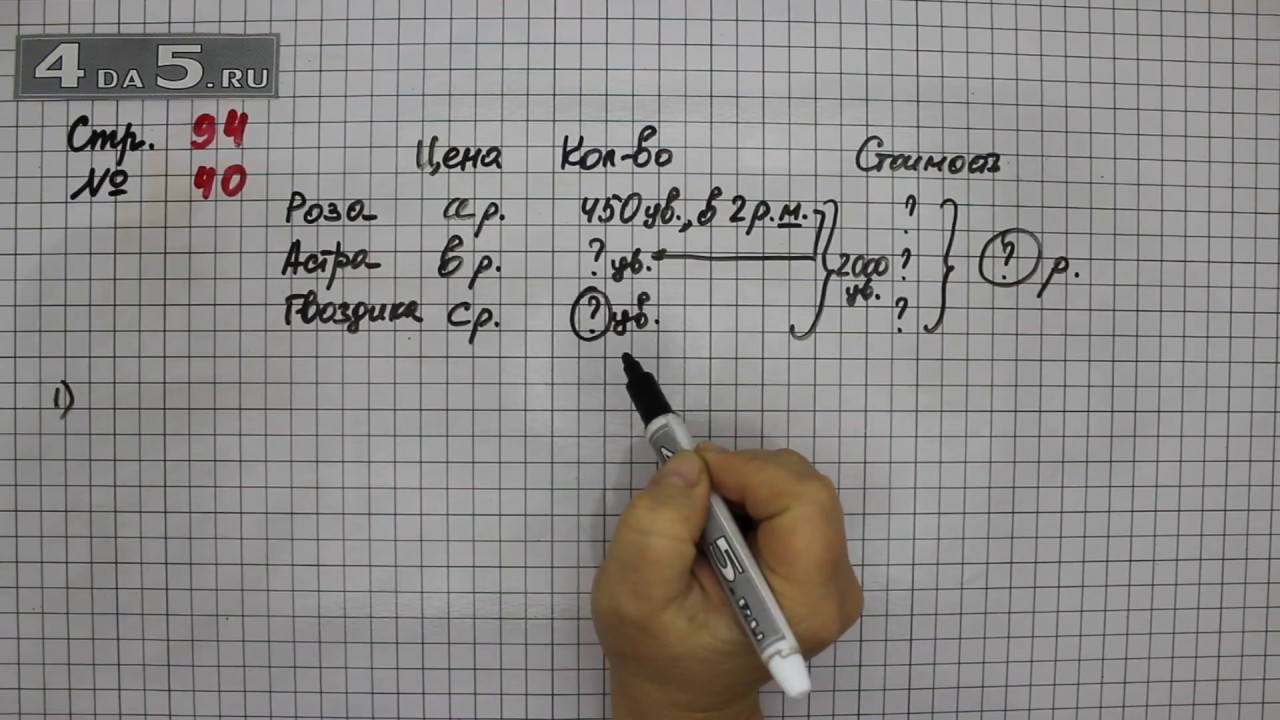 4DA5.RU
Стр. 94
№ 40
Цена Кол-во Стоимость
Роза а р. 450 цв., в 2 р. м. ?
Астра в р. ? цв. 2000 цв. ? ? р.
Гвоздика с р. ? цв. ?
1)
5.RU